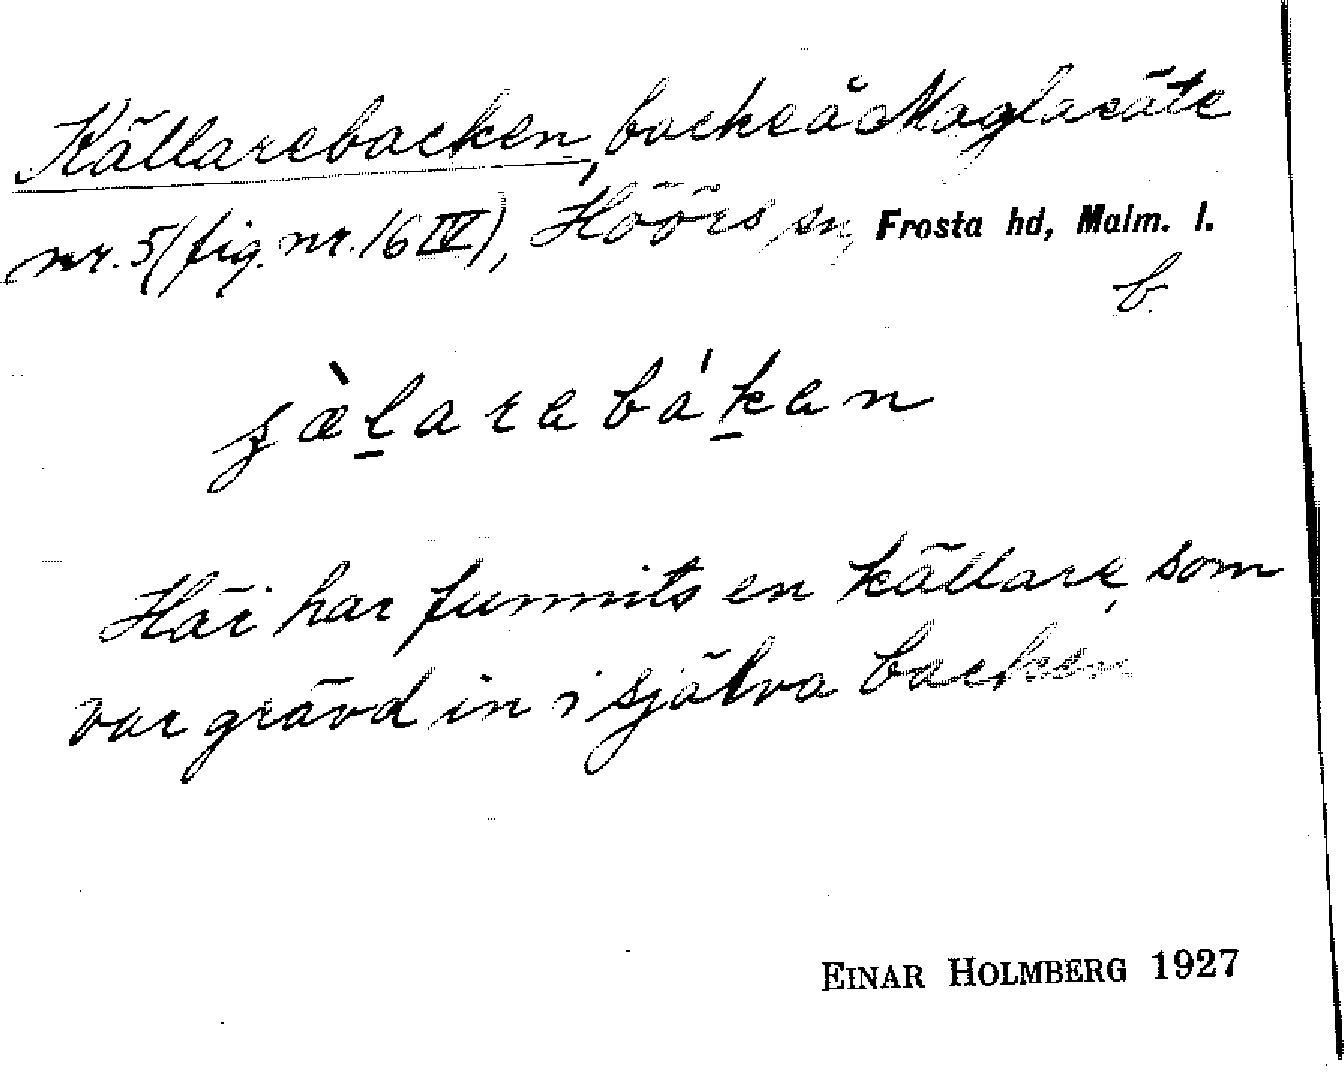 Källarebacken, backe å Maglasäte
nr. 5 (fig. nr. 16 IV), Höörs sn, Frosta hd, Malm. l.
b.
ʂæ̀l̠arabák̠an
Här har funnits en källare, som
var grävd in i själva backen
EINAR HOLMBERG 1927